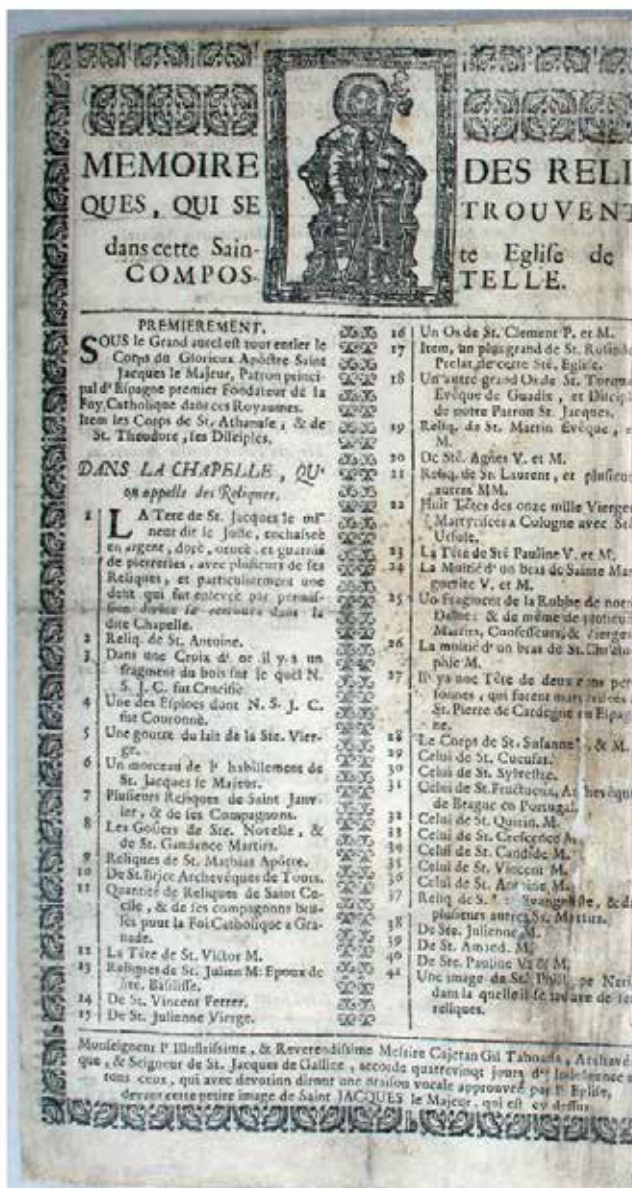 MEMOIRE DES RELI
QUES, QUI SE TROUVENT
dans cette Sain- te Eglise de
COMPOS- TELLE.
PREMIEREMENT.
SOUS le Grand autel est tout entier le
Corps du Glorieux Apôstre Saint
Jacques le Majeur, Patron princi-
pal d'Espagne premier Fondateur de la
Foy Catholique dans ces Royaumes.
Item les Corps de St. Athanase, & de
St. Theodore, ses Disciples.
DANS LA CHAPELLE, QU'
on appelle des Reliques.
1 LA Tete de St. Jacques le mi-
neur dit le Juste, enchaiseè
en argent, dorè, et guarnie
de pierreries, avec plusieurs de ses
Reliques, et particulierement une
dent qui fut enlevée par permis-
sion se dans la
dite Chapelle.
2 Reliq. de St. Antoine.
3 Dans une Croix d' or il y a un
fragment du bois sur le quel N.
S. J. C. fut Crucifiè.
4 Une des Espines dont N. S. J. C.
fut Couronnè.
5 Une goutte du lait de la Ste. Vier-
ge.
6 Un morceau de l' habillement de
St. Jacques le Majeur.
7 Plusieurs Reliques de Saint Janv-
ier, & de ses Compagnons.
8 Les Gosiers de Ste. Novelle, &
de St. Gandence Martirs.
9 Reliques de St. Mathias Apôtre.
10 De St. Brice Archevéques de Tours.
11 Quantitè de Reliques de Saint Ce-
cile, & de ses compagnons
pour la Foi Catholique a Gra-
nade.
12 La Tête de St. Victor M.
13 Reliques de St. Julien M: Epoux de
Ste. Basilisse.
14 De St. Vincent Ferrer.
15 De St. Julienne Vierge.
16 Un Os de St. Clement P. et M.
17 Item, un plus grand de St. Rosende
Prelat de cette Ste. Eglise.
18 Un autre grand Os de St. Torqua
Evêque de Guadix, et Discip
de notre Patron St. Jacques.
19 Reliq. de St. Martin Evêque, e
M.
20 De Stè. Agñes V. et M.
21 Reliq. de St. Laurent, et plusieu
autres MM.
22 Huit Têtes des onze mille Vierges
a Cologne avec Ste
Ursule.
23 La Tête de Stè Pauline V. et M.
24 La Moitié d' un bras de Sainte Mar
guerite V. et M.
25 Un Fragment de la Robbe de notr
Dame: & de même de
Martirs, Confesseurs, & Vierges
26 La moitié d' un bras de St.
phle M.
27 Il ya une Tête de deux cens per
sonnes, qui furent a
St. Pierre de Cardegne en Espag
ne.
28 Le Corps de St. Susanne, & M.
29 Celui de St. Cucufat.
30 Celui de St. Sylvestre.
31 Celui de St. Fructueux, Archevèque
de Brague en Portugal.
32 Celui de St. Quirin. M.
33 Celui de St. Crescence M.
34 Celui de St. Candide M.
35 Celui de St. Vincent M.
36 Celui de St. Antoine M.
37 Reliq de S. Evangeliste, & de
plusieurs autres Ss. Martirs.
38 De Ste. Julienne M.
39 De St. Amand. M.
40 De Ste. Pauline V. & M.
41 Une image de St. pe Neri
dans la quelle il se de ses
reliques.
Monseigneur l' Illustrissime, & Reverendissime Messire Cajetan Gil Taboada, Archevê
que, & Seigneur de St. Jacques de Gallice, accorde quatrevingt jours d' Indulgence a
tous ceux, qui avec devotion diront une oraison vocale approuveè par l' Eglise,
devant cette petite image de Saint JACQUES le Majeur, qui est cy dessus